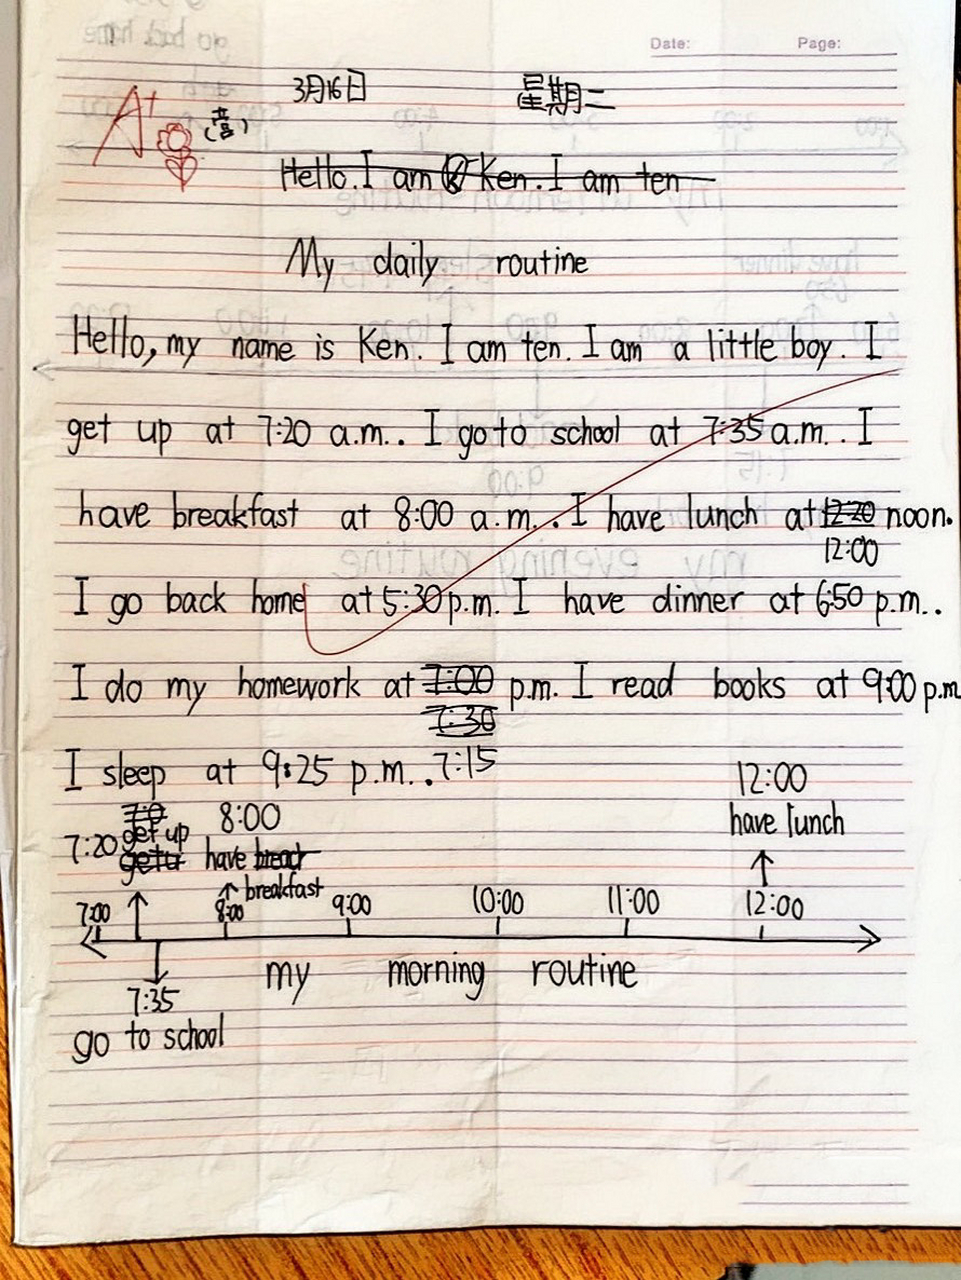 Date: Page:
3月16日 星期二
A+
Hello. I am Ken. I am ten
My daily routine
Hello, my name is Ken. I am ten. I am a little boy. I
get up at 7:20 a.m.. I go to school at 7:35 a.m.. I
have breakfast at 8:00 a.m.. I have lunch at 12:20 noon.
12:00
I go back home at 5:30 p.m. I have dinner at 6:50 p.m..
I do my homework at 7:00 p.m. I read books at 9:00 p.m
7:30
I sleep at 9:25 p.m.. 7:15
12:00
8:00
7:20 get up
have lunch
getu have
breakfast
7:00 8:00 9:00 10:00 11:00 12:00
my morning routine
7:35
go to school